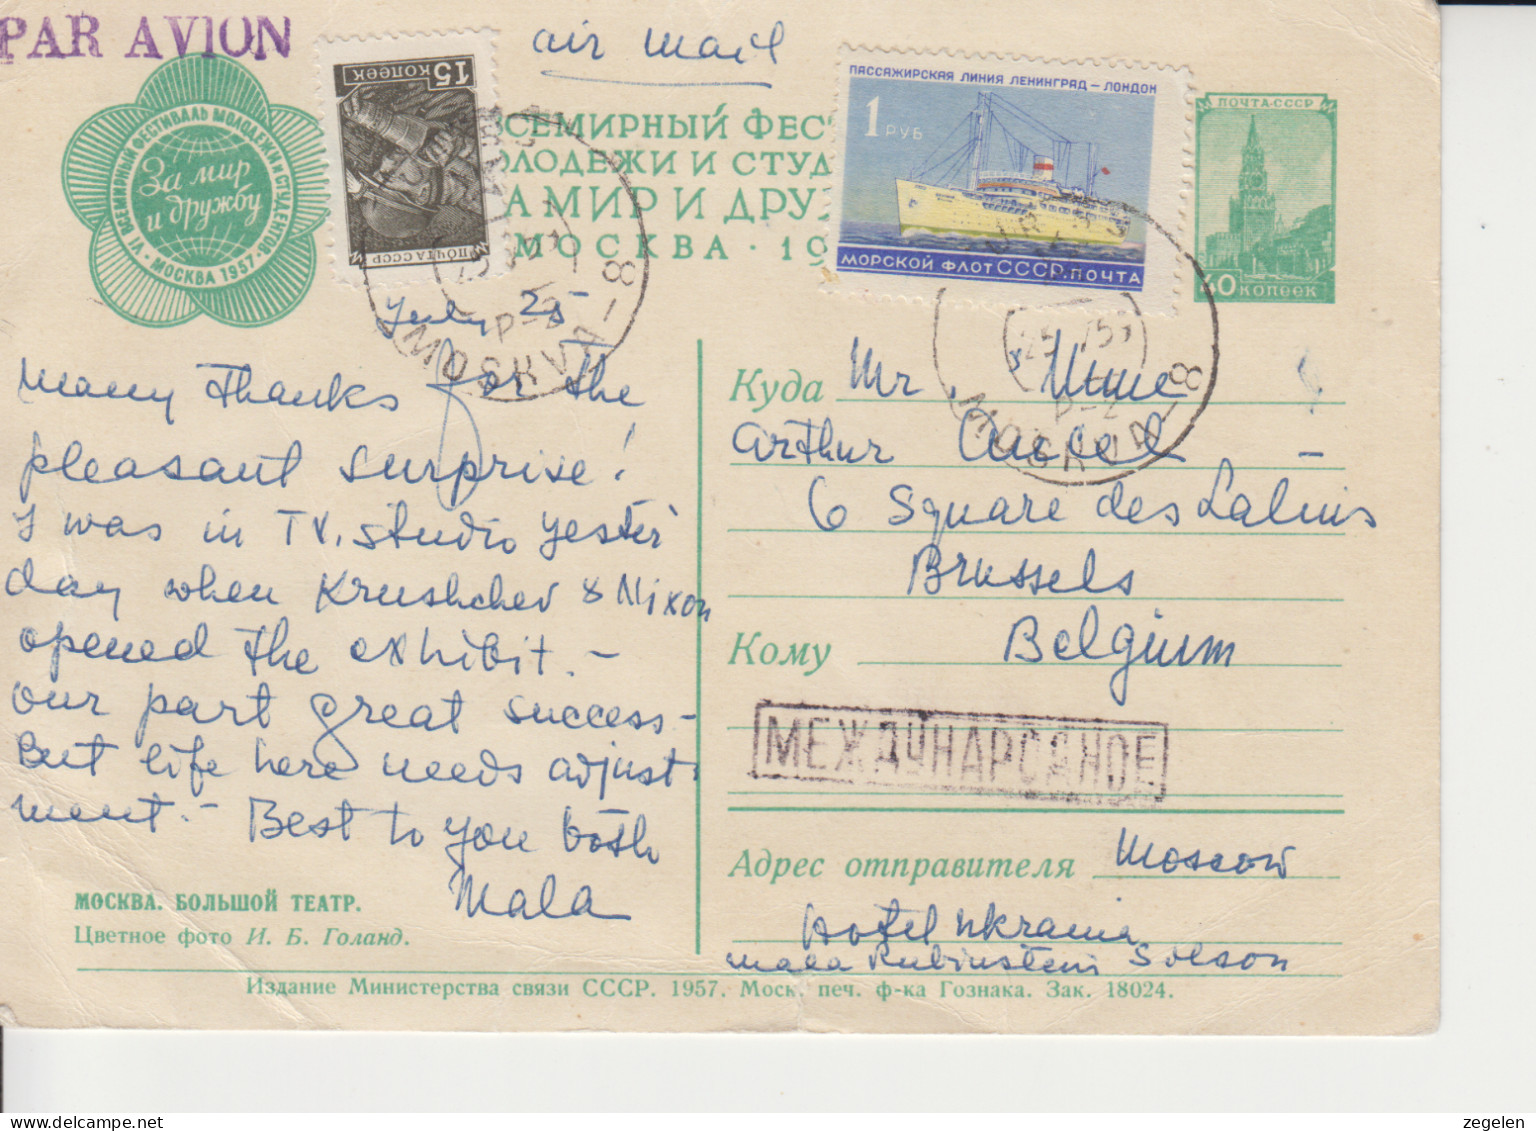 PAR AVION
air mail
VI ВСЕМИРНЫЙ ФЕСТИВАЛЬ МОЛОДЕЖИ И СТУДЕНТОВ
За мир
и дружбу
МОСКВА 1957
15 КОПЕЕК
ПОЧТА СССР
СЕМИРНЫЙ ФЕС
ОЛОДЕЖИ И СТУД
А МИР И ДРУ
МОСКВА · 19
ПАССАЖИРСКАЯ ЛИНИЯ ЛЕНИНГРАД – ЛОНДОН
1 РУБ
МОРСКОЙ ФЛОТ СССР. ПОЧТА
ПОЧТА·СССР
40 КОПЕЕК
MOSKVA-8
MOSKVA-8
July 25
Many thanks for the
pleasant surprise!
I was in TV. studio yester
day when Krushchev & Nixon
opened the exhibit. –
our part great success –
But life here needs adjust
ment. – Best to you both
Mala
Куда Mr. & Mme
Arthur
6 Square des
Brussels
Кому Belgium
МЕЖДУНАРОДНОЕ
Адрес отправителя Moscow
Hotel Ukraine
Mala Rubinstein Solson
МОСКВА. БОЛЬШОЙ ТЕАТР.
Цветное фото И. Б. Голанд.
Издание Министерства связи СССР. 1957. Моск. печ. ф-ка Гознака. Зак. 18024.
zegelen